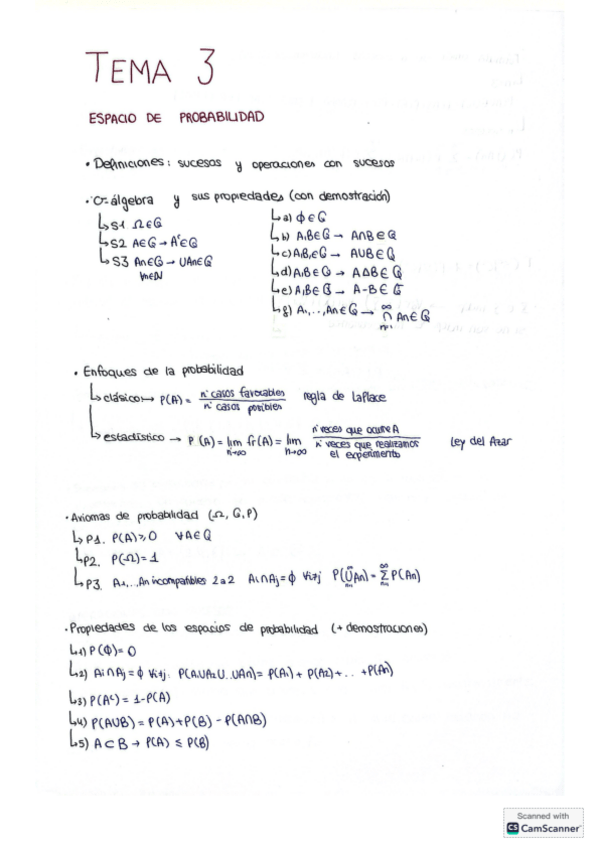 TEMA 3
ESPACIO DE PROBABILIDAD
• Definiciones: sucesos y operaciones con sucesos
• σ-álgebra y sus propiedades (con demostración)
↳S1 Ω∈G
↳S2 A∈G → Aᶜ∈G
↳S3 An∈G → UAn∈G
n∈N
↳a) ϕ∈G
↳b) A,B∈G → A∩B∈G
↳c) A,B∈G → AUB∈G
↳d) A,B∈G → A∆B∈G
↳e) A,B∈G → A-B∈G
↳g) A1,..,An∈G → ∞∩n=1 An∈G
• Enfoques de la probabilidad
↳clásico → P(A) = nº casos favorables / nº casos posibles regla de Laplace
↳estadístico → P(A) = lim n→∞ fr(A) = lim n→∞ nº veces que ocurre A / nº veces que realizamos el experimento Ley del Azar
• Axiomas de probabilidad (Ω, G, P)
↳P1. P(A)≥0 ∀A∈G
↳P2. P(Ω)=1
↳P3. A1,...An incompatibles 2 a 2 Ai∩Aj=ϕ ∀i≠j P(∞Un=1 An) = ∞Σn=1 P(An)
• Propiedades de los espacios de probabilidad (+ demostraciones)
↳1) P(ϕ)=0
↳2) Ai∩Aj=ϕ ∀i≠j: P(A1UA2U...UAn)= P(A1) + P(A2)+... +P(An)
↳3) P(Aᶜ) = 1-P(A)
↳4) P(AUB) = P(A)+P(B) - P(A∩B)
↳5) A⊂B → P(A) ≤ P(B)
Scanned with
CS CamScanner